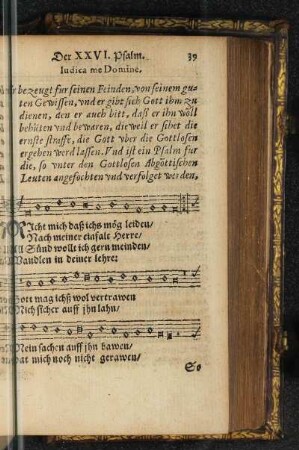 Der XXVI. Psalm. 39
Iudica me Domine.
bezeugt fur seinen Feinden, von seinem gu-
ten Gewissen, vnd er gibt sich Gott ihm zu
dienen, den er auch bitt, daß er ihn wöll
behüten vnd bewaren, die weil er sihet die
ernste straffe, die Gott vber die Gottlosen
ergehen werd lassen. Vnd ist ein Psalm für
die, so vnter den Gottlosen Abgöttischen
Leuten angefochten vnd verfolget werden.
RIcht mich daß ichs mög leiden/
Nach meiner einfalt Herre/
Sünd wollt ich gern meinden/
Wandlen in deiner lehre:
Gott mag ichs wol vertrawen
Mich sicher auff jhn lahn/
Mein sachen auff jhn bawen/
hat mich noch nicht gerawen/
So